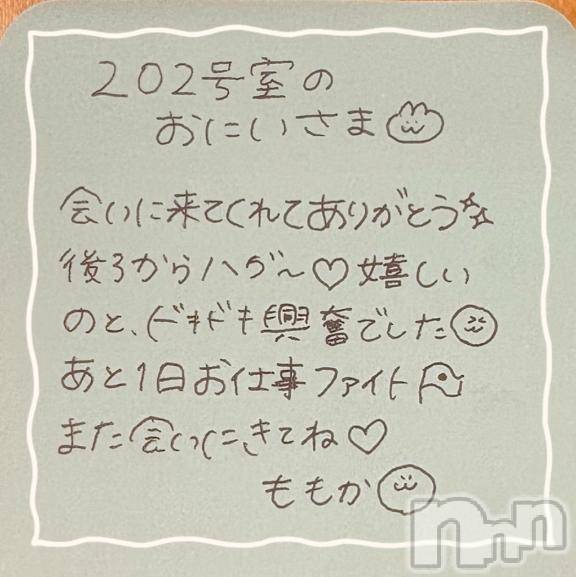 202号室の
おにいさま
会いに来てくれてありがとう
後ろからハグ〜♡嬉しい
のと、ドキドキ興奮でした
あと1日お仕事ファイト
また会いにきてね♡
ももか
nnn